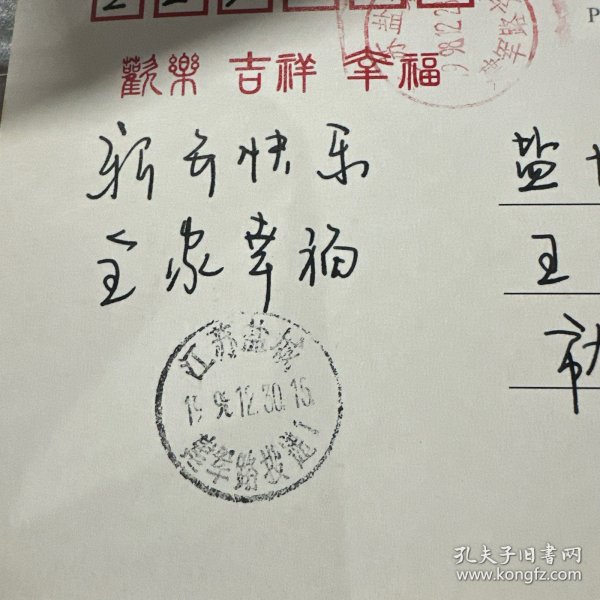 歡樂 吉祥 幸福
新年快乐
全家幸福
盐
王
市
江苏盐城
19 98.12.30.15
建军路投递1
P
孔夫子旧书网
www.kongfz.com